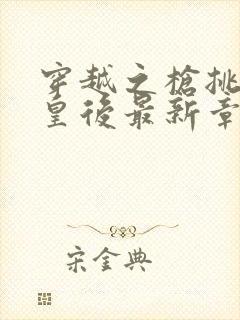 穿越之槍挑
皇後最新章
宋金典